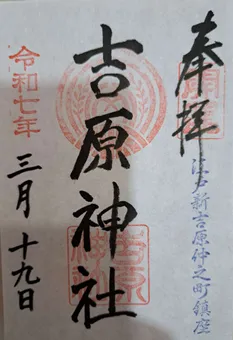 奉拝
江戸新吉原仲之町鎮座
吉原神社
令和七年
三月十九日